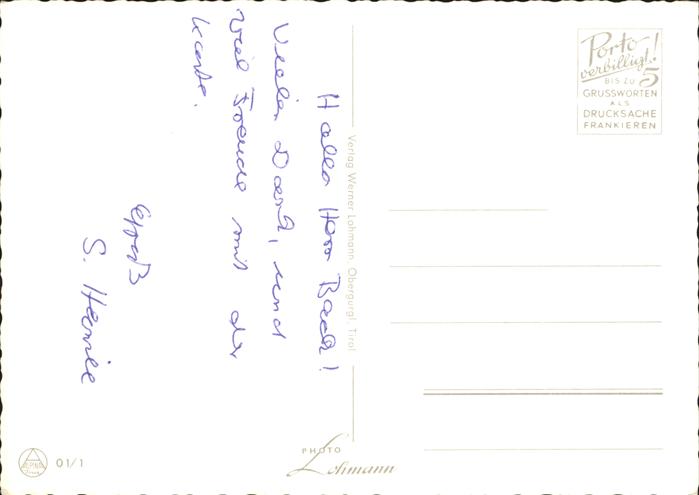 Hallo Herr Bach!
Vielen Dank, und
viel Freude mit der
Karte.
Gruß
S.
Verlag Werner Lohmann, Obergurgl, Tirol
Porto
verbilligt!
BIS ZU 5
GRUSSWORTEN
ALS
DRUCKSACHE
FRANKIEREN
01/1
PHOTO
Lohmann